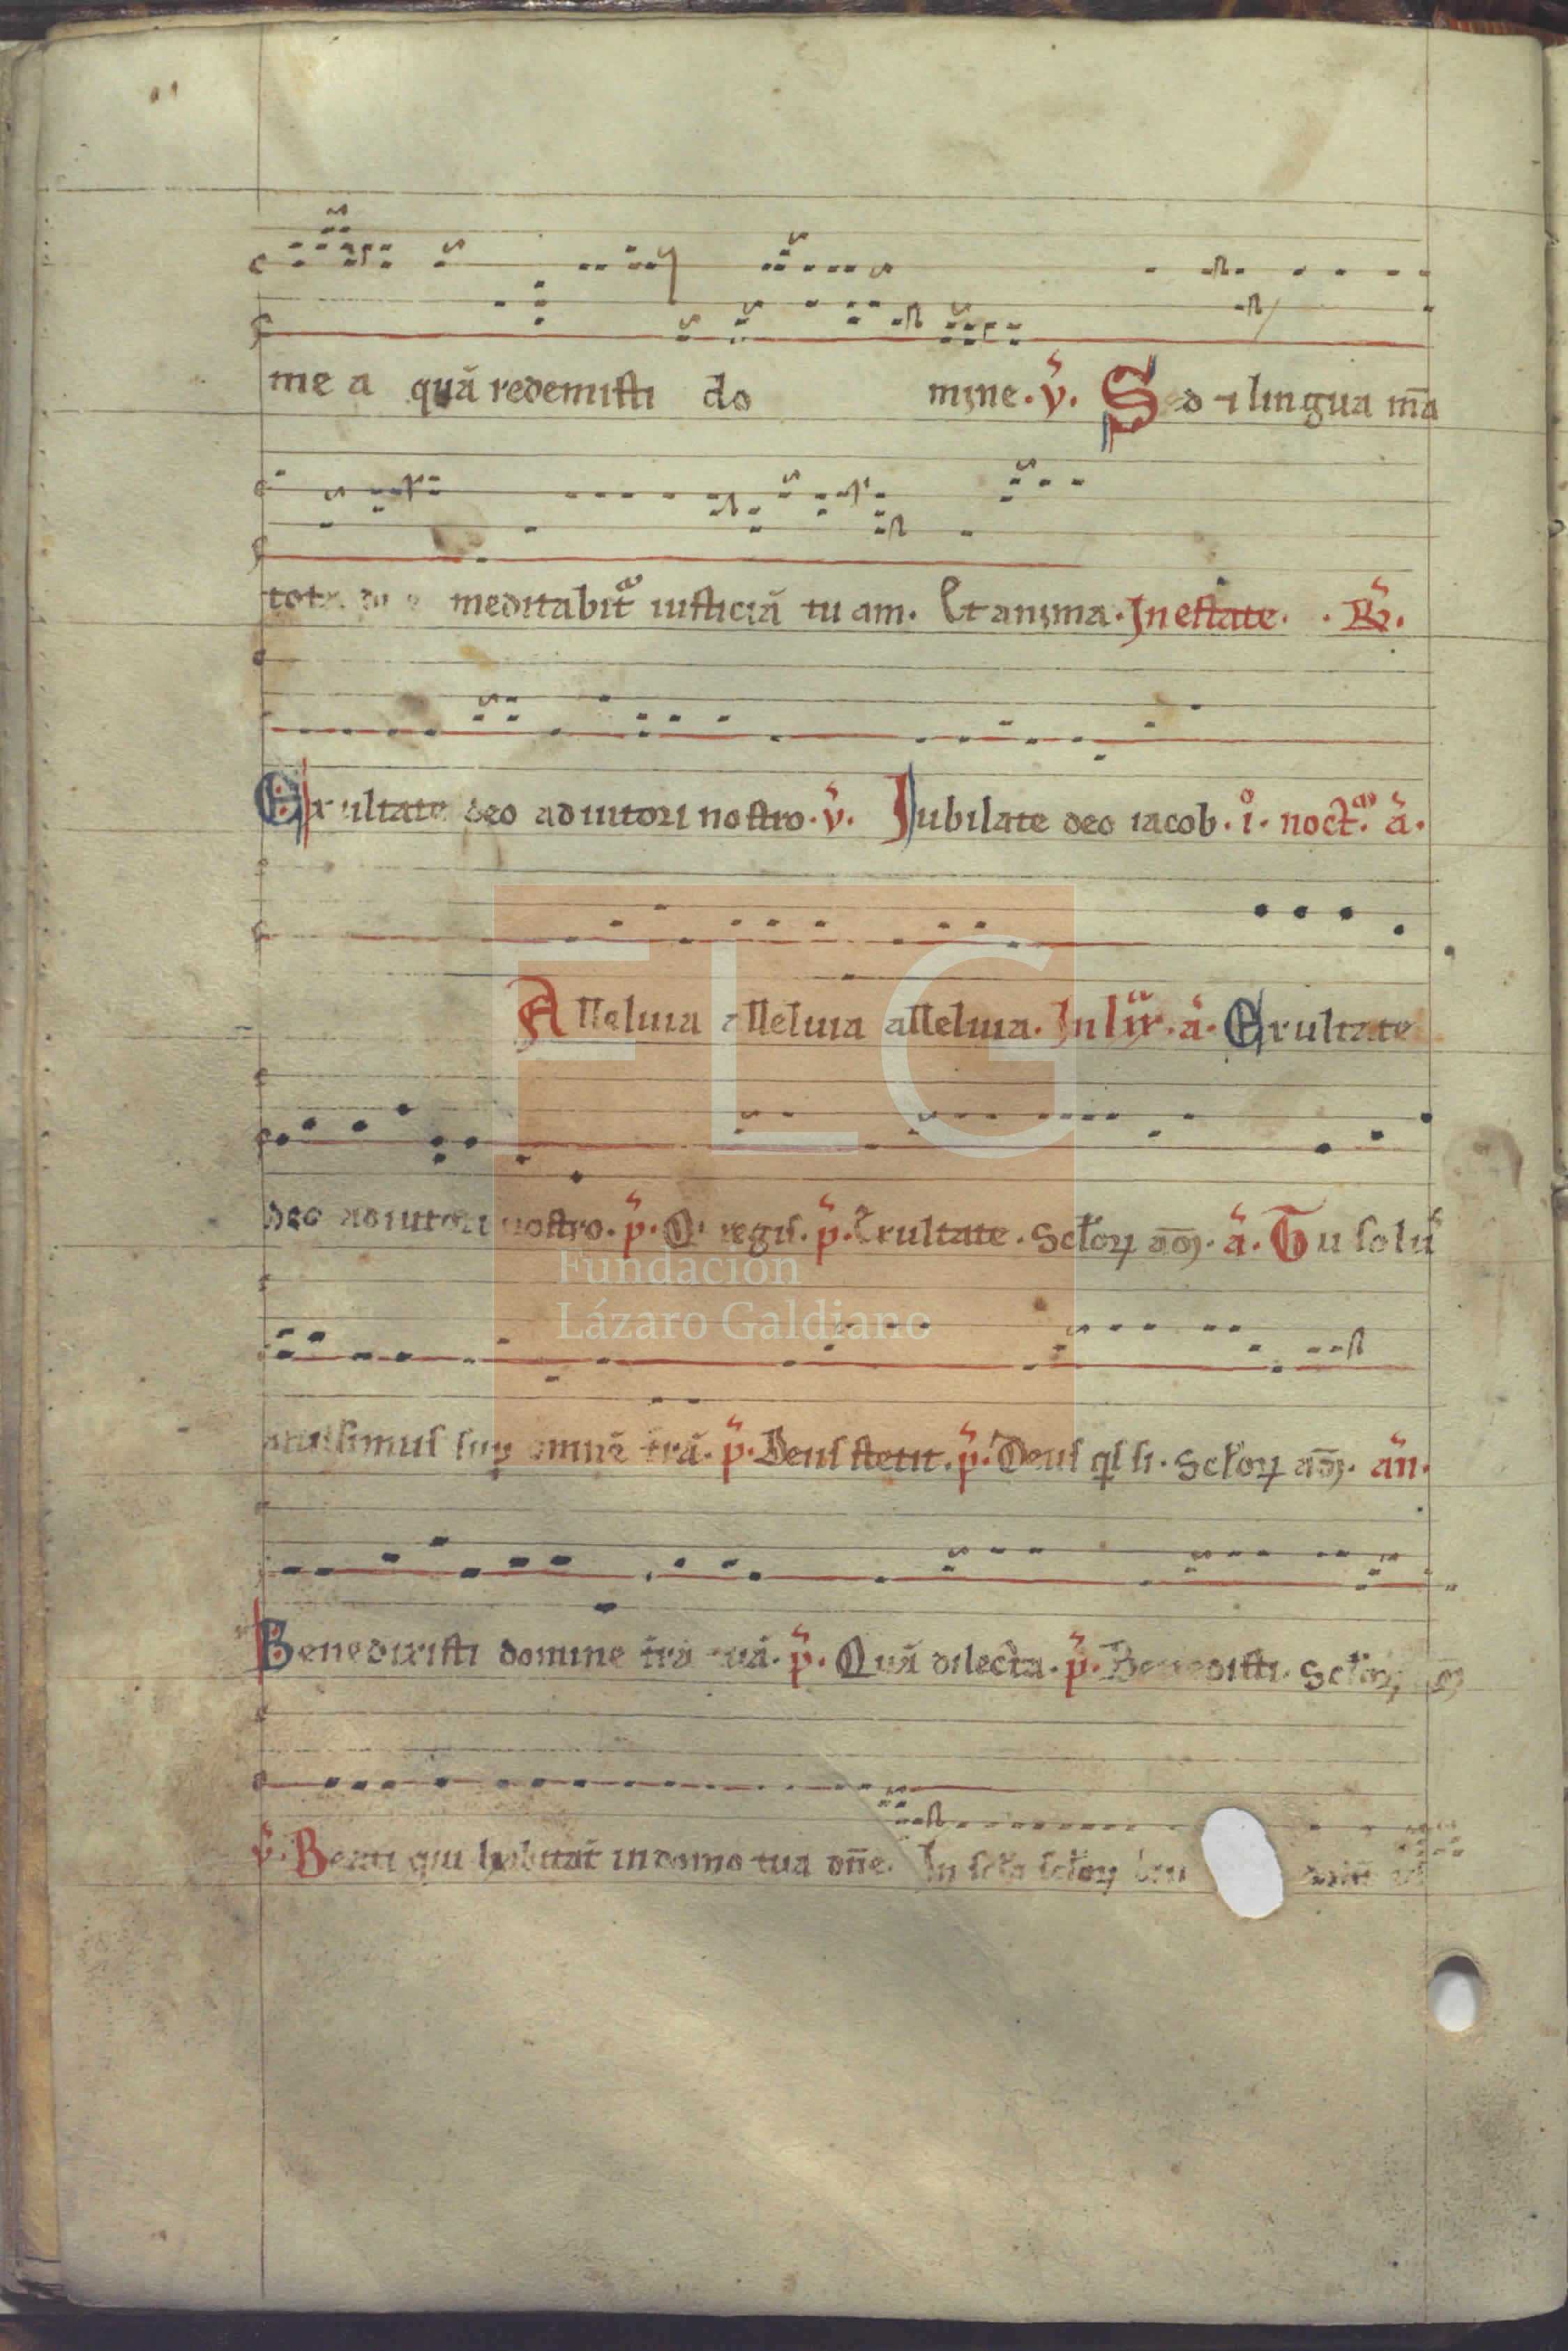 me a quã redemisti do mine. v̄. Sed ⁊ lingua mēa
tota di e meditabit᷑ iusticiã tu am. Et anima. In estate. R̄.
Exultate deo adiutori nostro. v̄. Iubilate deo iacob. i. noct᷑. ā.
Alleluia alleluia alleluia. In līr. ā. Exultate
deo adiutori nostro. p̄. Q̄ regis. p̄. Exultate. Sc̄loꝝ am̄. ā. Tu solus
altissimus sup omnē t̄rā. p̄. Deus stetit. p̄. Deus qͥs si. Sc̄loꝝ am̄. añ.
Benedixisti domine t̄rā tuā. p̄. Quā dilecta. p̄. Benedisti. Sc̄loꝝ am̄
v̄. Beati qui habitāt in domo tua dn̄e. In sc̄la sc̄loꝝ lau
FLG
Fundación
Lázaro Galdiano